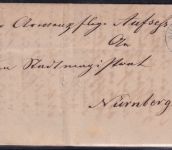 Armenpflege Aufseß
An
den Stadtmagistrat
Nürnberg